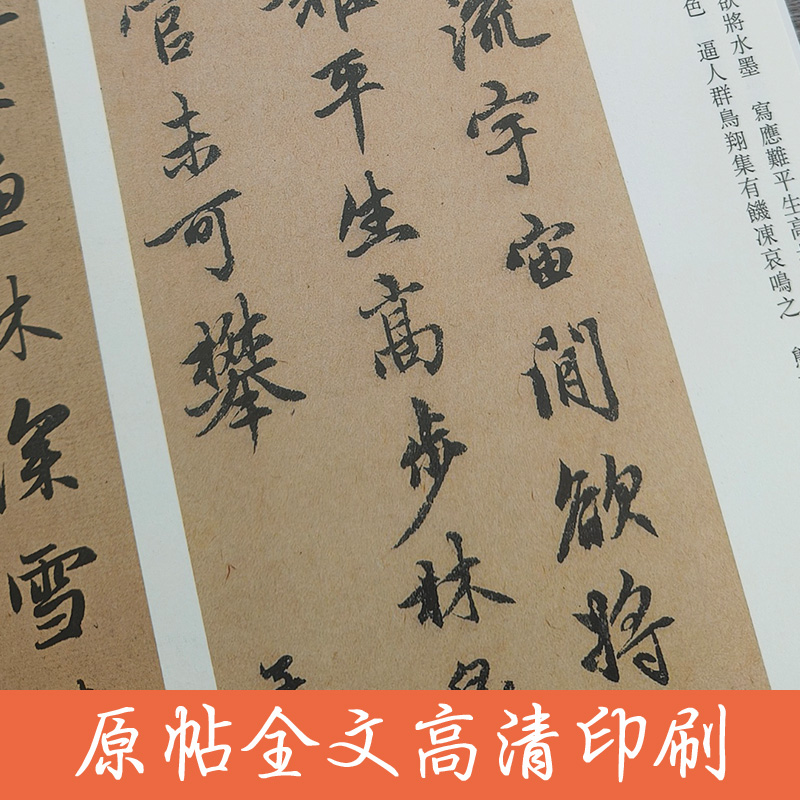 欲將水墨 寫應難平生高
色 逼人群鳥翔集有饑凍哀鳴之
流宇宙間欲將
難平生高步林
管未可攀
林深雪
原帖全文高清印刷